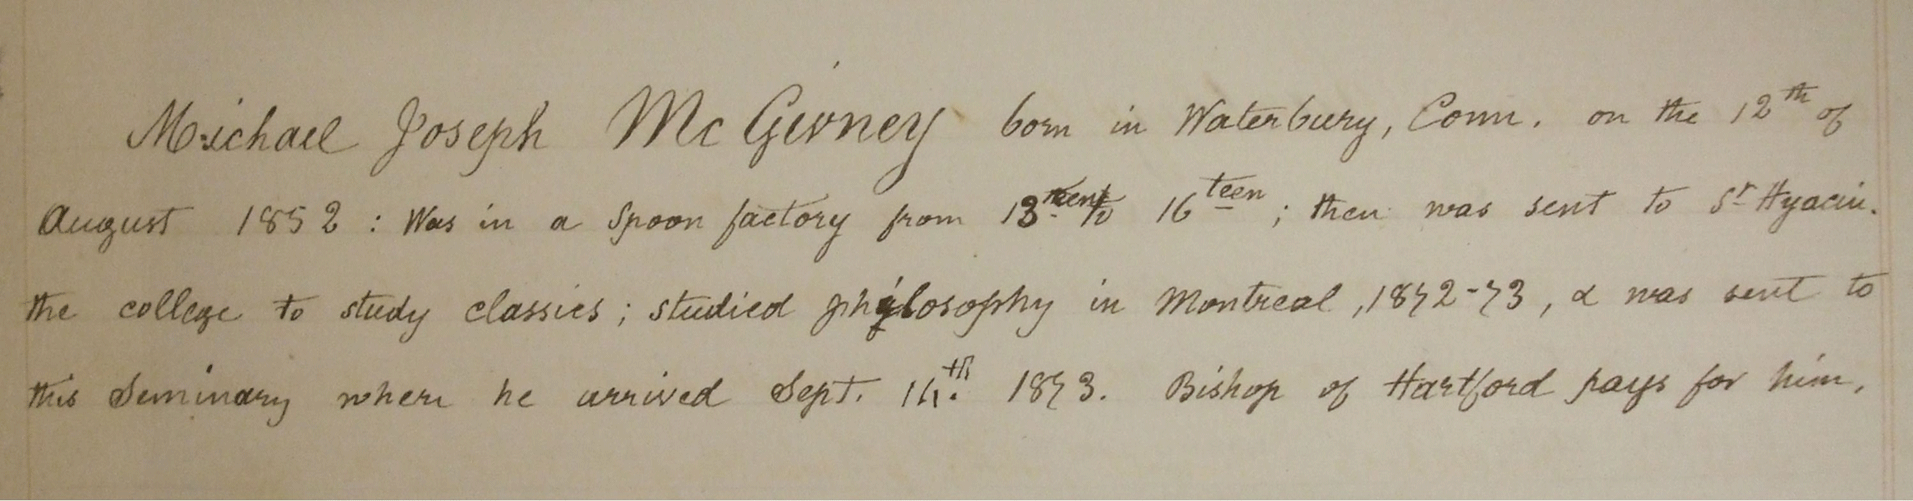 Michael Joseph McGivney born in Waterbury, Conn. on the 12th of
August 1852 : Was in a spoon factory from 13teen to 16teen ; then was sent to St Hyacin-
the college to study classics ; studied philosophy in Montreal, 1872-73, & was sent to
this Seminary where he arrived Sept. 14th. 1873. Bishop of Hartford pays for him.